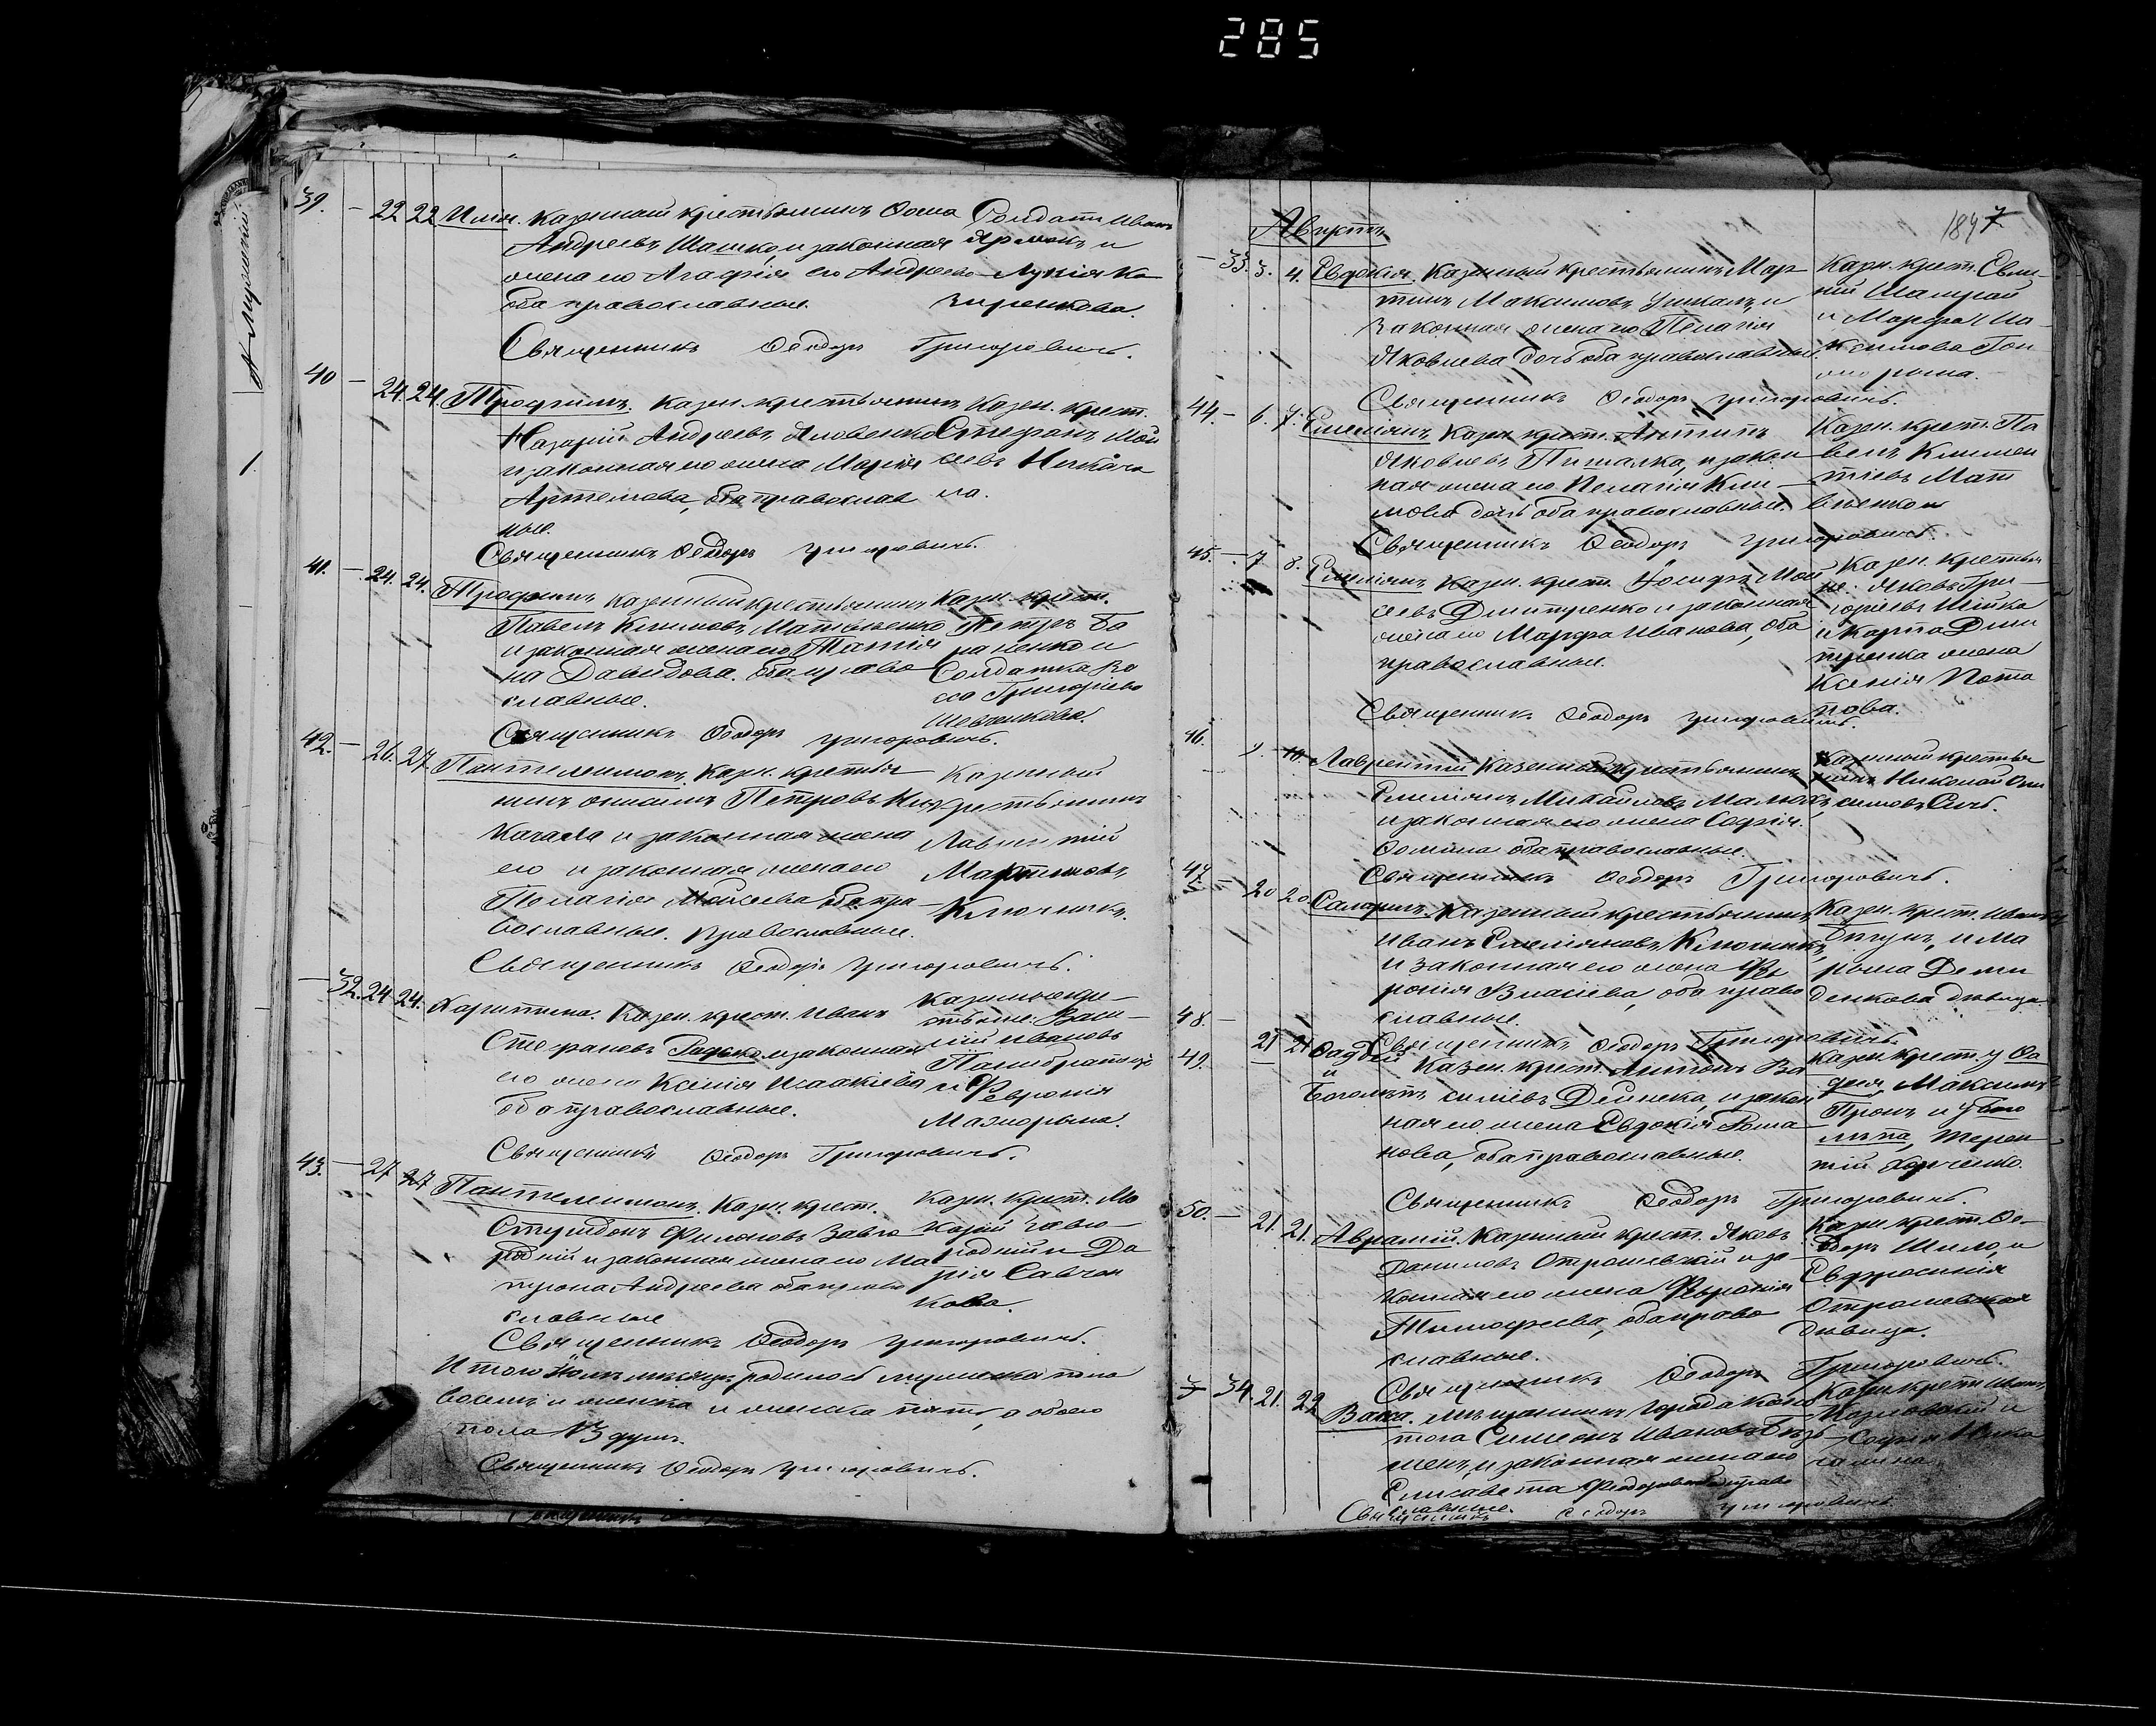 285
39. — 22 22 Илія. Казенный крестьянинъ Ѳома
Андреевъ Шашко, и законная
жена его Агафія Андреева
оба православные.
Солдатъ Иванъ
Ярмакъ и
Лукія Ка
зиренкова.
Священникъ Ѳеодоръ Григоровичъ.
40 — 24. 24. Трофимъ. Казен. крестьянинъ
Назарій Андреевъ Яловенко
и законная его жена Марія
Артемова, оба православ
ные.
Казен. крест.
Стефанъ Мои
сеевъ
Священникъ Ѳеодоръ Григоровичъ.
41. — 24. 24. Трофимъ казенный крестьянинъ
Павелъ Климовъ Матвіенко
и законная жена его Татія
на Давидова. оба право
славные.
Казен. крест.
Петръ Ба
раненко и
Солдатка
Григоріева
Шевченкова.
Священникъ Ѳеодоръ Григоровичъ.
42. — 26. 27. Пантелеимонъ. Казен. крестья
нинъ Петровъ
Качала и законная жена
его и законная жена его
Пелагія Моисеева оба пра
вославные. православные.
Казенный
крестьянинъ
Лаврентій
Мартиновъ
Ключникъ.
Священникъ Ѳеодоръ Григоровичъ.
— 32. 24 24. Харитина. Казен. крест. Иванъ
Стефановъ и законная
его жена Ксенія Исаакіева
оба православные.
Казенные кре
стьяне. Васи
лій Ивановъ
и Февронія
Мазнорина.
Священникъ Ѳеодоръ Григоровичъ.
43. — 27 27 Пантелеимонъ. Казен. крест.
Спиридонъ Филоновъ Завго
родній и законная жена его Ма
трона Андреева оба право
славные
Казен. крест. Мо
кій Завго
родній и Да
рія Савчен
кова.
Священникъ Ѳеодоръ Григоровичъ.
Итого Іюль мѣсяцъ родилось мужеска пола
восемь и женска и женска пять, а обоего
пола 13 душъ.
Священникъ Ѳеодоръ Григоровичъ.
1847
Августъ
— 33. 3. 4. Евдокія. Казенный крестьянинъ Мар
тинъ Максимовъ и
законная жена его Пелагія
Яковлева дочь оба православные.
Казен. крест. Евги
ній Шамрай
и Марфа Ма
ксимова Гон
Священникъ Ѳеодоръ Григоровичъ.
44. — 6. 7. Емеліанъ Казен. крест. Антипъ
Яковлевъ Пищалка, и закон
ная жена его Пелагія Кли
мова дочь оба православные.
Казен. крест. Па
велъ Климен
тіевъ Мат
віенко
Священникъ Ѳеодоръ Григоровичъ.
45. — 7 8. Емеліанъ Казен. крест. Іосифъ Мои
сеевъ Дмитренко и законная
жена его Марфа Иванова, оба
православные.
Казен. крестья
не. Яковъ Гри
горіевъ Шійка
и Карпа Дми
тренка жена
Ксенія Пота
пова.
Священникъ Ѳеодоръ Григоровичъ.
46. 9. 10. Лаврентій Казенный крестьянинъ
Емеліанъ Михайловъ Малюкъ,
и законная его жена Софія.
Ѳомина оба православные.
Казенный крестья
нинъ Николай Они
симовъ Сичъ.
Священникъ Ѳеодоръ Григоровичъ.
47 — 20 20 Казенный крестьянинъ
Иванъ Емеліановъ Ключникъ,
и законная его жена Фев
ронія Власіева, оба право
славные.
Казен. крест. Иванъ
Бигунъ, и Ма
рина Деми
денкова дѣвица.
Священникъ Ѳеодоръ Григоровичъ.
48. —
49. 21 21 Ѳаддей
и
Боголѣпъ
Казен. крест. Антонъ Ва
силіевъ Дейнека, и закон
ная его жена Евдокія Рома
нова, оба православные.
Казен. крест. у Ѳа
дея, Максимъ
Пронъ и у Бого
лѣпа, Терен
тій Харченко.
Священникъ Ѳеодоръ Григоровичъ.
50. — 21. 21. Аврамій. Казенный крест. Яковъ
Даниловъ Отрошевскій и за
конная его жена Февронія
Тимофеева, оба право
славные.
Казен. крест. Ѳе
доръ Шило, и
Евфросинія
Отрошевская
дѣвица.
Священникъ Ѳеодоръ Григоровичъ.
34. 21. 22 Васса. Мѣщанинъ города Коно
топа Симеонъ Ивановъ
и законная жена его
Елисавета Феодорова оба право
славные.
Казен. крест. Иванъ
Козловскій и
Софія
Священникъ Ѳеодоръ Григоровичъ.